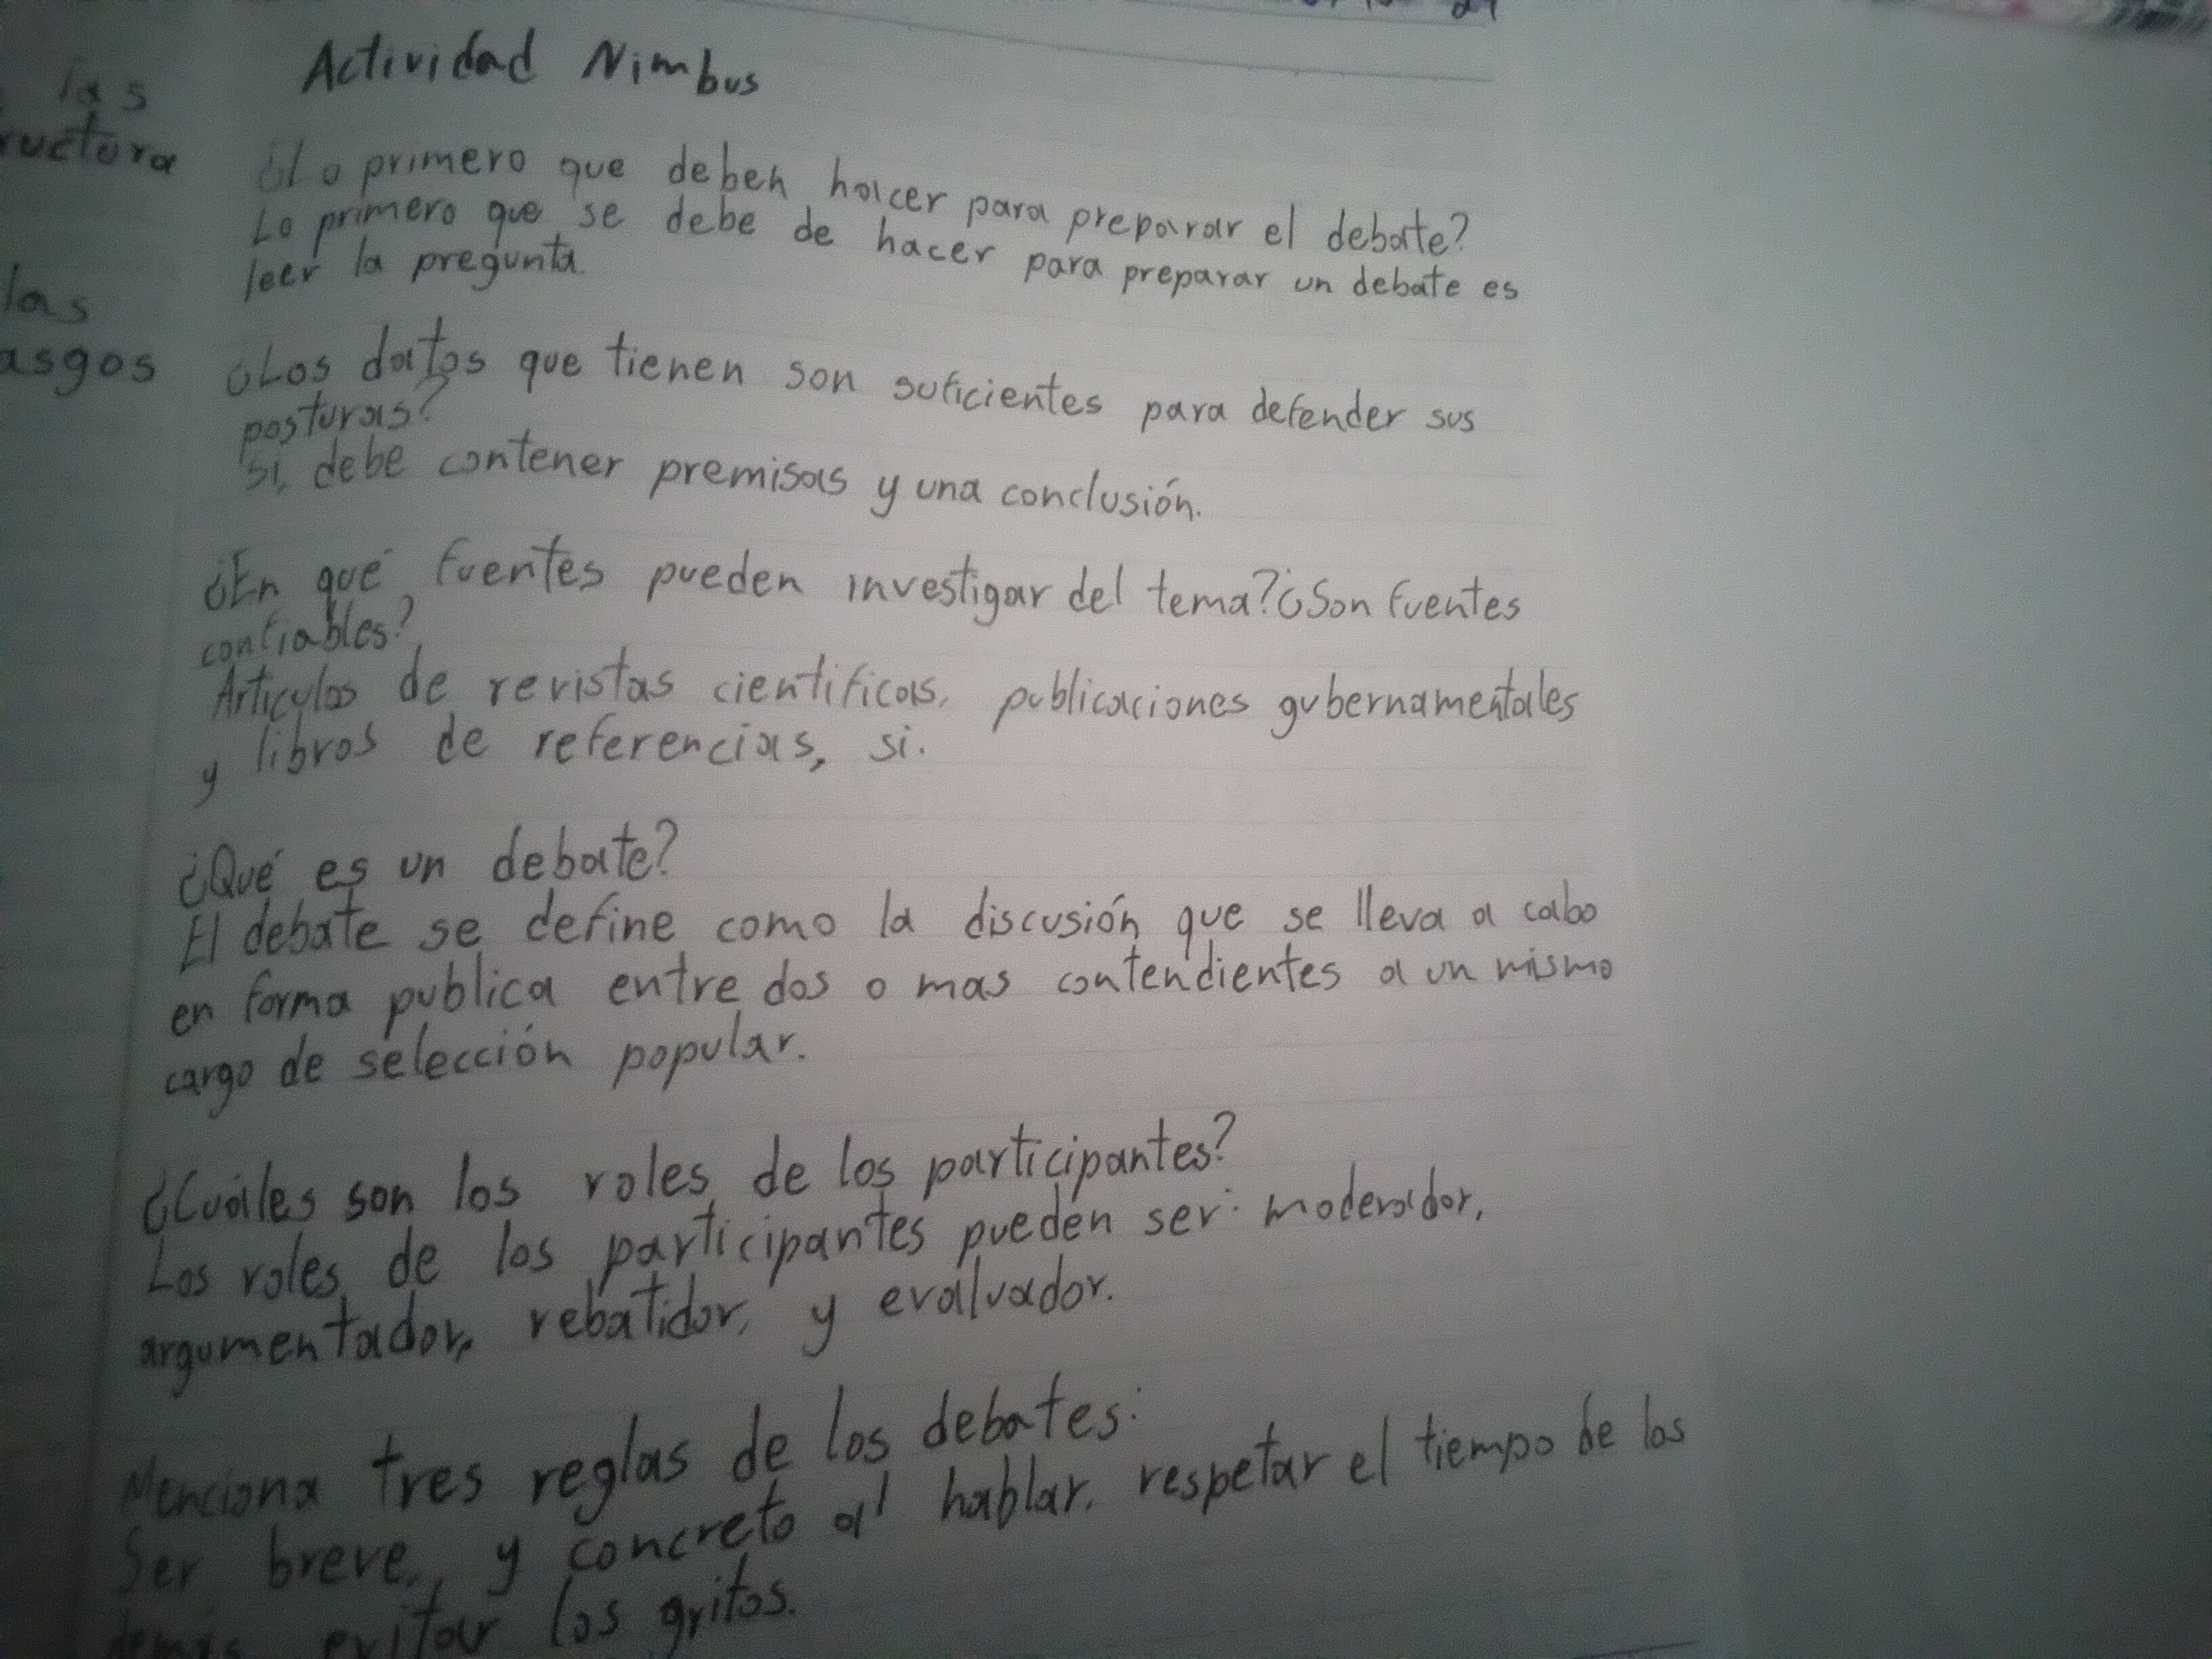 Actividad Nimbus
las
ructura
¿Lo primero que deben hacer para preparar el debate?
Lo primero que se debe de hacer para preparar un debate es
leer la pregunta.
las
asgos
¿Los datos que tienen son suficientes para defender sus
posturas?
si, debe contener premisas y una conclusión.
¿En qué fuentes pueden investigar del tema? ¿Son fuentes
confiables?
Articulos de revistas cientificas, publicaciones gubernamentales
y libros de referencias, si.
¿Qué es un debate?
El debate se define como la discusión que se lleva a cabo
en forma publica entre dos o mas contendientes a un mismo
cargo de selección popular.
¿Cuáles son los roles de los participantes?
Los roles de los participantes pueden ser: moderador,
argumentador, rebatidor, y evaluador.
Menciona tres reglas de los debates:
Ser breve, y concreto al hablar, respetar el tiempo de los
demás, evitar los gritos.